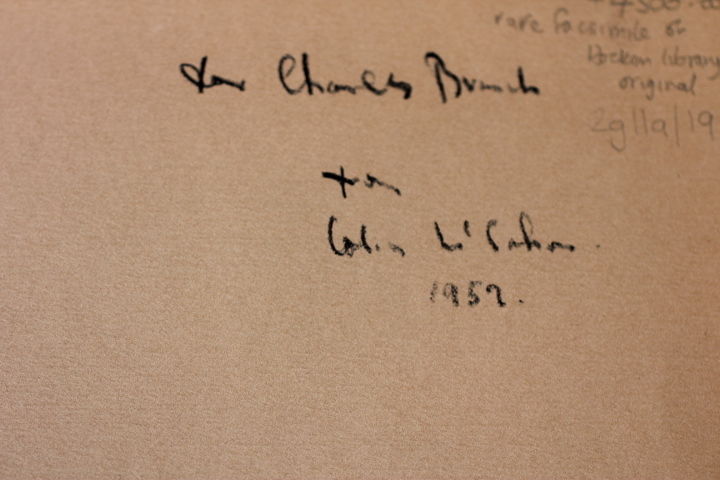 for Charles Brasch
from
Colin McCahon.
1952.
rare facsimile of
Hocken library
original